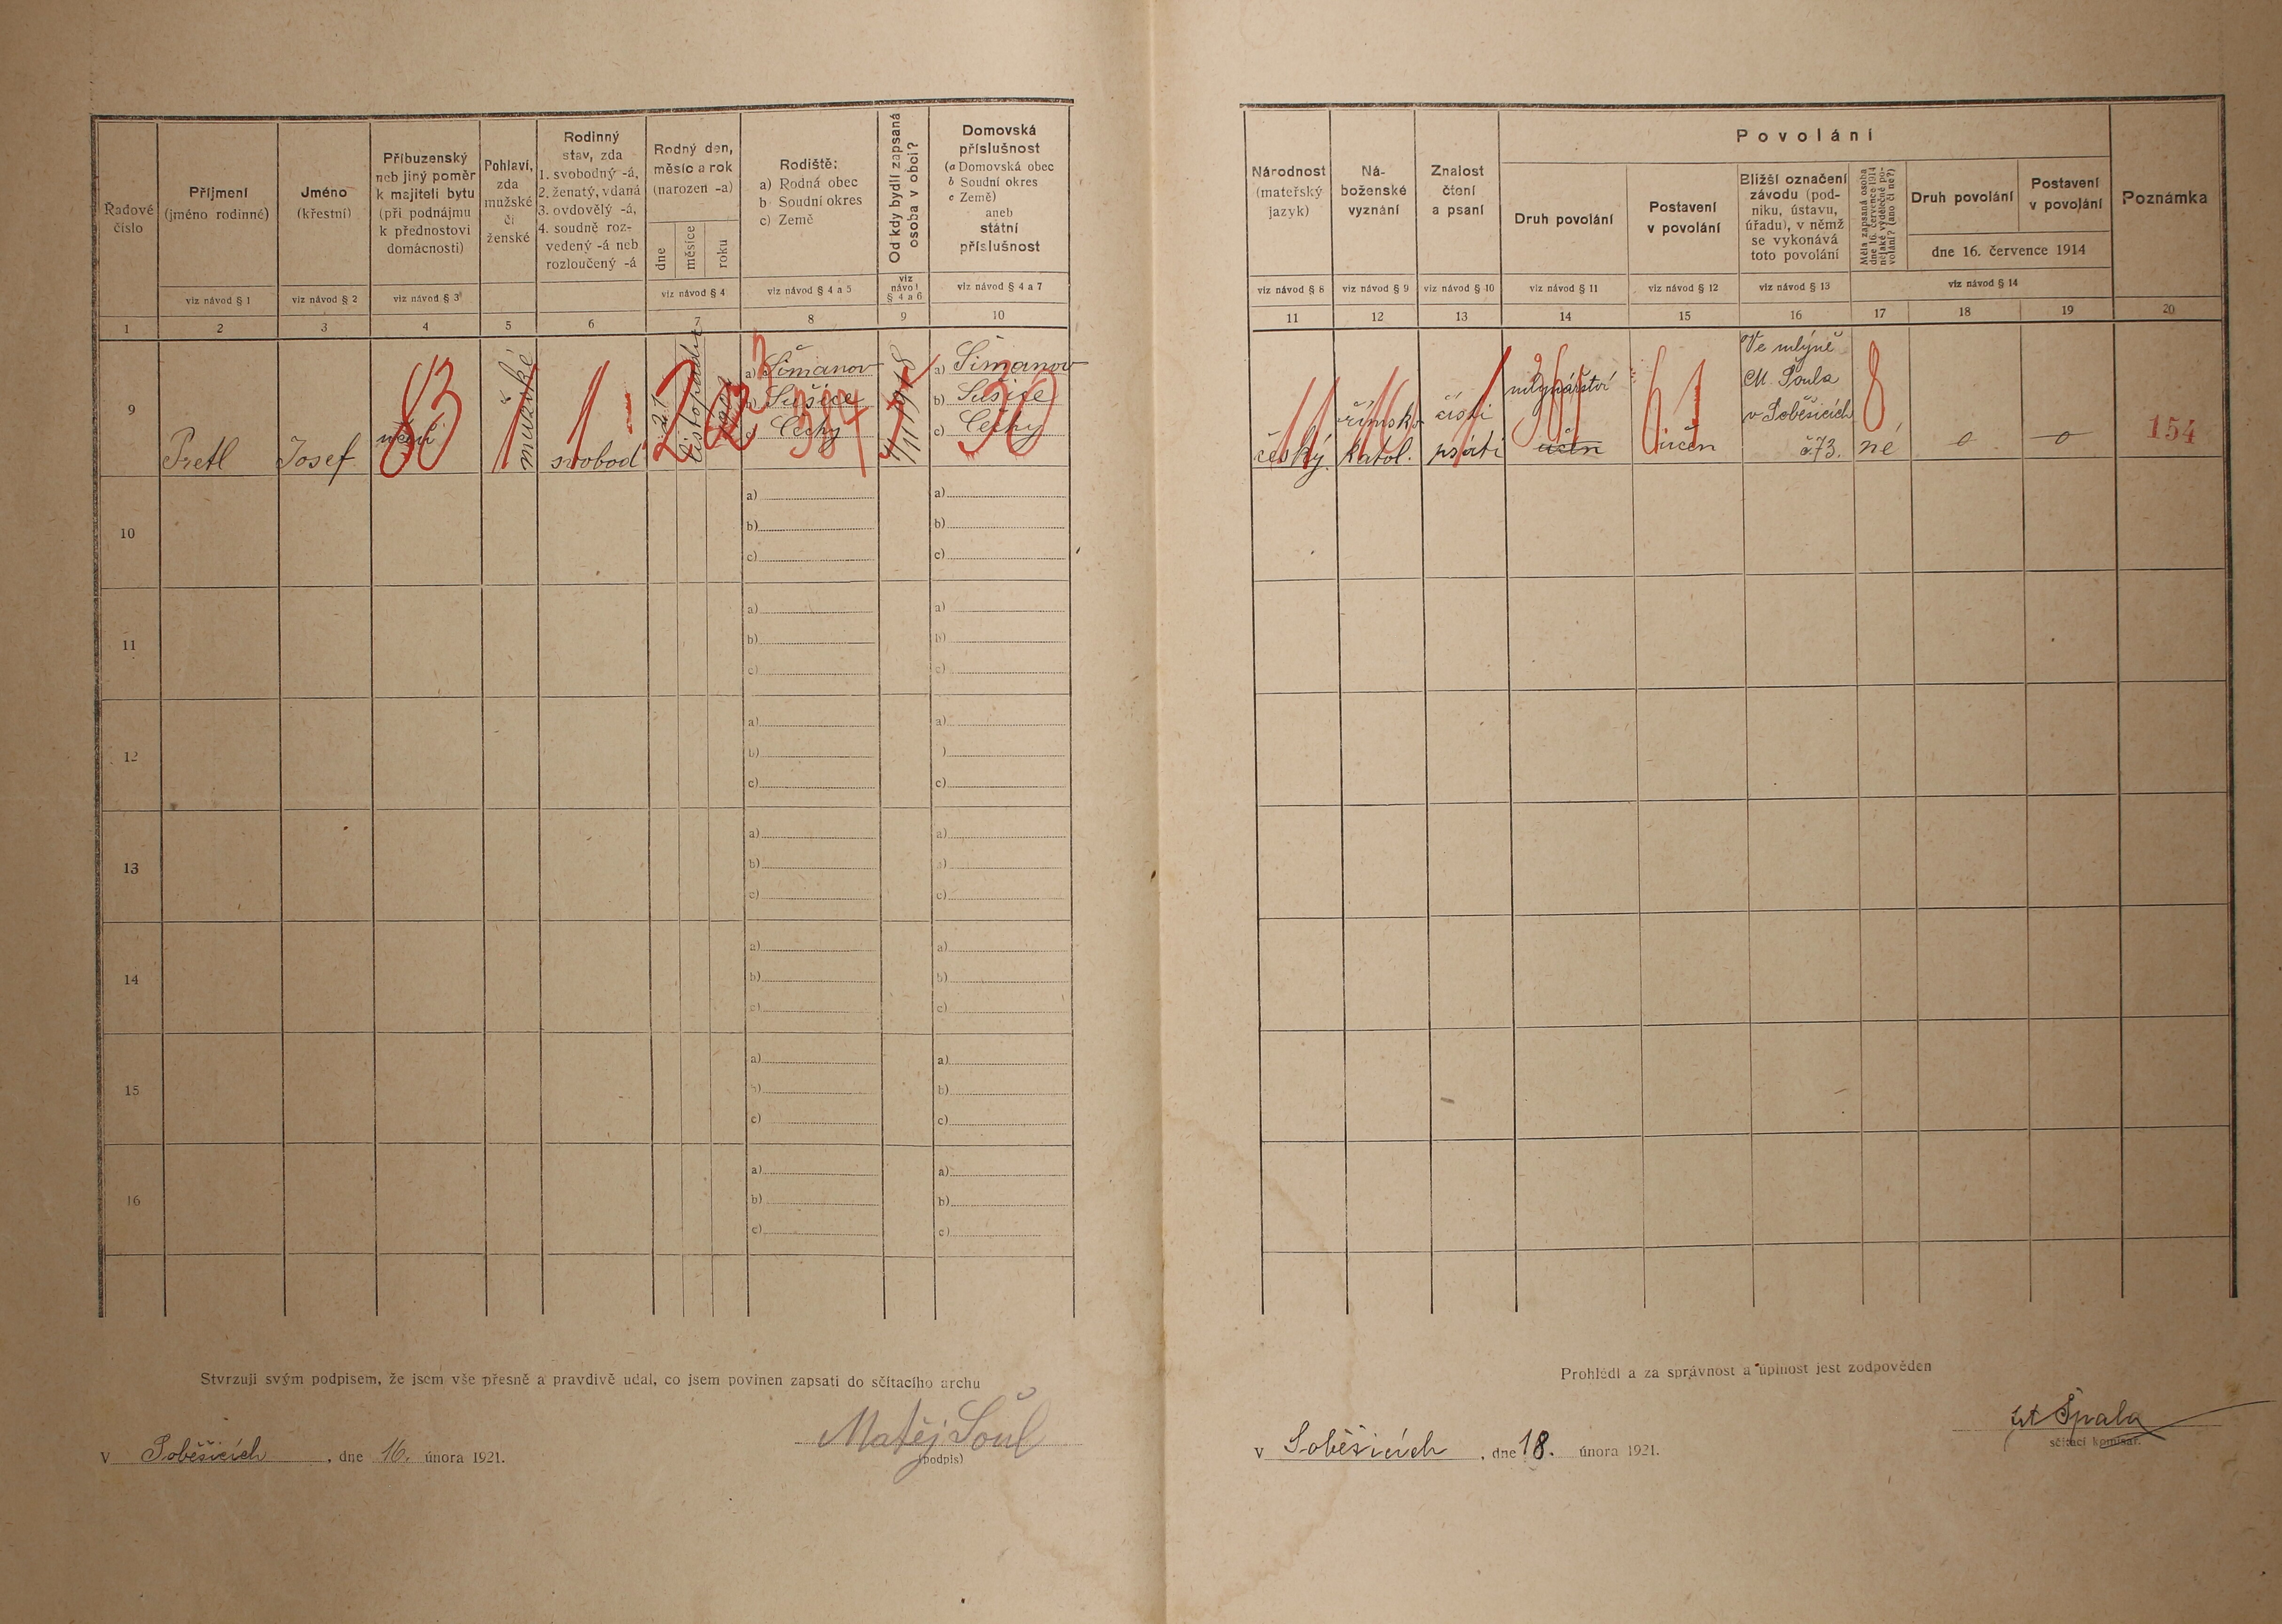 Řadové
číslo
Příjmení
(jméno rodinné)
viz návod § 1
Jméno
(křestní)
viz návod § 2
Příbuzenský
neb jiný poměr
k majiteli bytu
(při podnájmu
k přednostovi
domácnosti)
viz návod § 3
Pohlaví,
zda
mužské
či
ženské
Rodinný
stav, zda
1. svobodný -á,
2. ženatý, vdaná
3. ovdovělý -á,
4. soudně roz-
vedený -á neb
rozloučený -á
Rodný den,
měsíc a rok
(narozen -a)
dne
měsíce
roku
viz návod § 4
Rodiště:
a) Rodná obec
b Soudní okres
c) Země
viz návod § 4 a 5
Od kdy bydlí zapsaná
osoba v obci?
viz
návo
§ 4 a 6
Domovská
příslušnost
(a Domovská obec
b Soudní okres
c Země)
aneb
státní
příslušnost
viz návod § 4 a 7
Národnost
(mateřský
jazyk)
viz návod § 8
Ná-
boženské
vyznání
viz návod § 9
Znalost
čtení
a psaní
viz návod § 10
Povolání
Druh povolání
viz návod § 11
Postavení
v povolání
viz návod § 12
Bližší označení
závodu (pod-
niku, ústavu,
úřadu), v němž
se vykonává
toto povolání
viz návod § 13
Měla zapsaná osoba
dne 16. července 1914
nějaké výdělečné po-
volání? (ano či ne?)
Druh povolání
Postavení
v povolání
dne 16. července 1914
viz návod § 14
Poznámka
1 2 3 4 5 6 7 8 9 10
11 12 13 14 15 16 17 18 19 20
9
Pretl
Josef
83
mužské
1
svobod
1
listopadu
a) Šimanov
b) Sušice
c) Čechy
384
1918
a) Šimanov
b) Sušice
c) Čechy
30
český.
římsko
katol.
čísti
psáti
mlynářství
učen
61
učen
Ve mlýně
M. Šoula
v Soběšicích
č. 73.
8
né
o
o
154
10
a) b) c)
a) b) c)
11
a) b) c)
a) b) c)
12
a) b) c)
a) ) c)
13
a) b) c)
a) b) c)
14
a) b) c)
a) b) c)
15
a) b) c)
a) b) c)
16
a) b) c)
a) b) c)
Stvrzuji svým podpisem, že jsem vše přesně a pravdivě udal, co jsem povinen zapsati do sčítacího archu
Matěj Šoul
(podpis)
v Soběšicích, dne 16. února 1921.
Prohlédl a za správnost a úplnost jest zodpověden
Špala
sčítací komisař.
v Soběšicích, dne 18. února 1921.